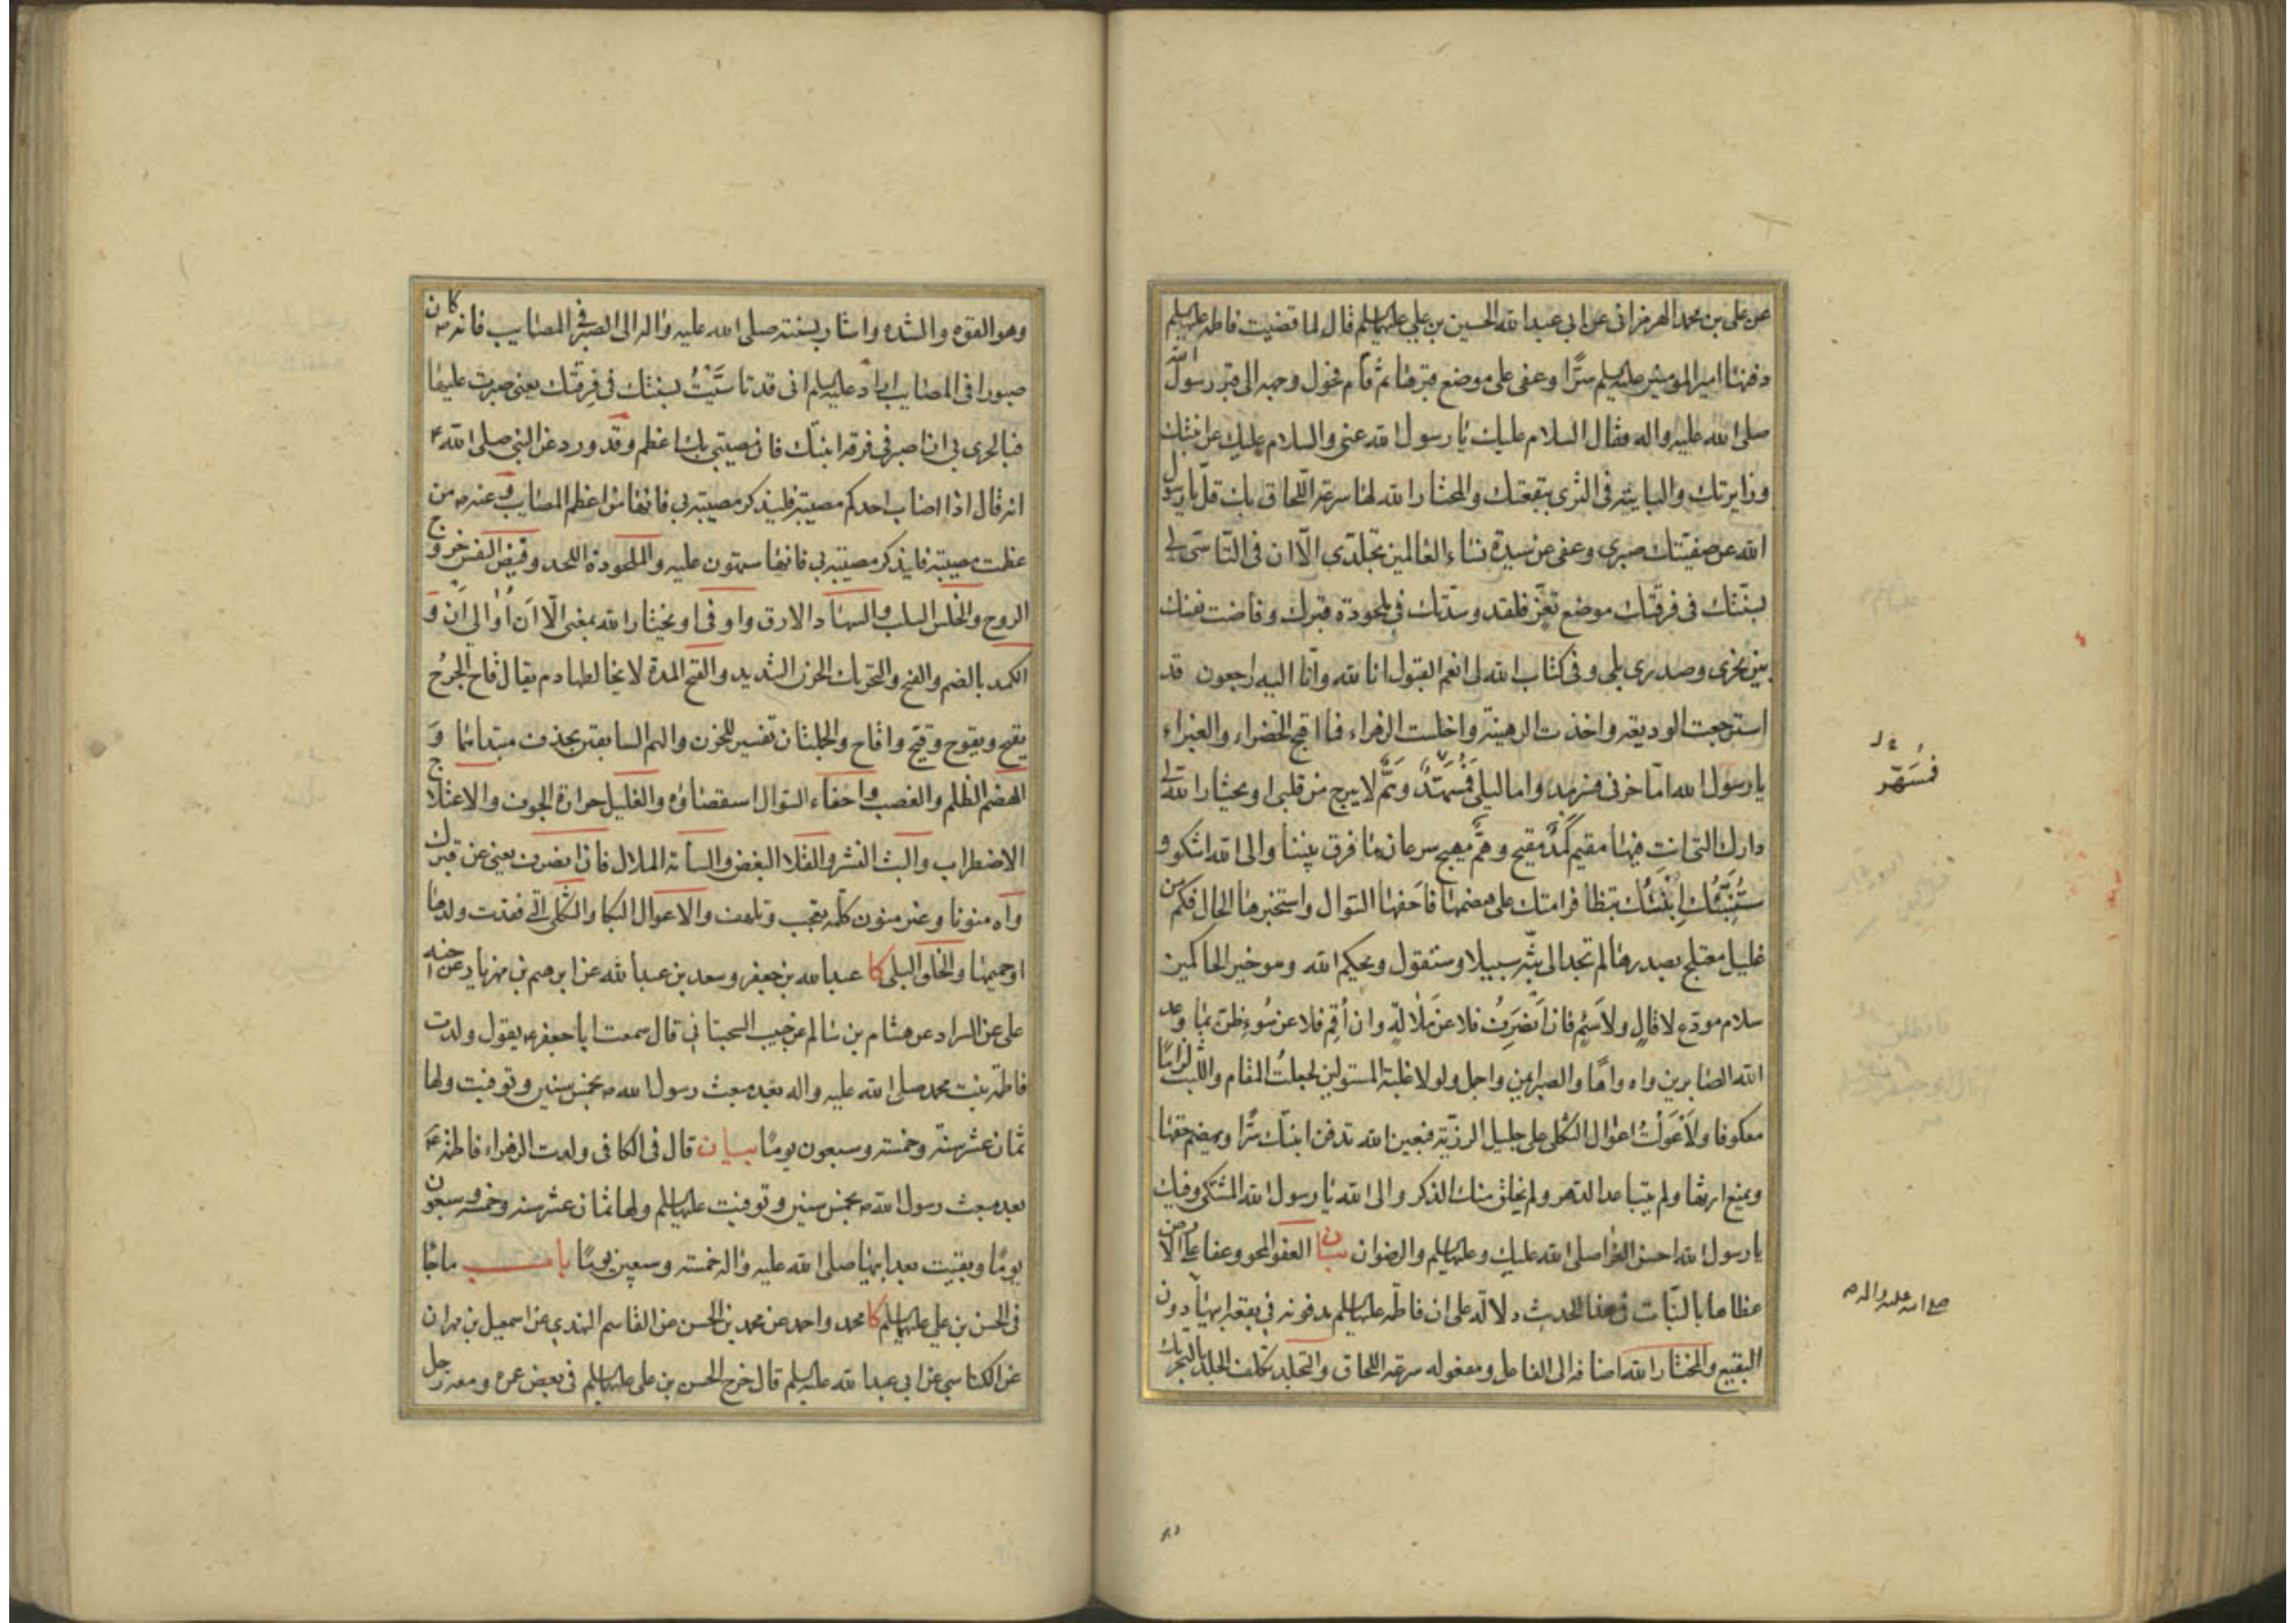 عن علي بن محمد الهرمزاني عن ابي عبدا لله الحسين بن علي عليهما السلم قال لما قضيت فاطمه عليها السلم
دفنها امير المومنين عليه السلم سرًّا وعفى على موضع قبرها ثم قام فحول وجهه الى قبر رسول الله
صلى الله عليه واله فقال السلام عليك يا رسول الله عني والسلام عليك عن ابنتك
وزايرتك والبايته في الثرى ببقعتك والمختار الله لها سرعة اللحاق بك قلّ يا رسول
الله عن صفيتك صبري وعفى عن سيدة نساء العالمين تجلّدي الّا ان في التاسّي لي
بسنّتك في فرقتك موضع تعزّ فلقد وسّدتك في ملحودة قبرك وفاضت نفسك
بين نحري وصدري بلى وفي كتاب الله لي انعم القبول انا لله وانّا اليه راجعون قد
استرجعت الوديعه واخذت الرهينة واخلست الزهراء فما اقبح الخضراء والغبراء
يا رسول الله امّا حزني فسرمد واما ليلي فمسهّد وهمّ لا يبرح من قلبي او يختار الله لي
دارك التي انت فيها مقيم كمد مقيح وهمّ مهيج سرعان ما فرق بيننا والى الله اشكو و
ستنبّئك ابنتك بتظافر امتك على هضمها فاحفها السوال واستخبرها الحال فكم من
غليل معتلج بصدرها لم تجد الى بثّه سبيلا وستقول ويحكم الله وهو خير الحاكمين
سلام مودّع لا قالٍ ولا سئم فان انصرف فلا عن ملالةٍ وان أقم فلا عن سُوء ظن بما وعد
الله الصابرين واه واهًا والصبر ايمن واجمل ولولا غلبة المستولين لجعلتُ المقام واللبث لزامًا
معكوفا ولأعولتُ اعوال الثكلى على جليل الرزيّة فبعين الله تدفن ابنتك سرًّا ويهضم حقها
ويمنع ارثها ولم يتباعد العهد ولم يخلق منك الذكر والى الله يا رسول الله المشتكى وفيك
يا رسول الله احسن العزا صلى الله عليك وعليها السلم والرضوان بيان العفو المحو وعفا على الارض
غطاها بالنبات في هذا الحديث دلالة على ان فاطمه عليها السلم مدفونه في بقعة ابيها دون
البقيع والمختار الله اضافه الى الفاعل ومفعوله سرعة اللحاق والتجلد تكلف الجلد بالتحريك
فمُسَهّد
صلى الله عليه واله
وهو القوه والشده واشار بسنته صلى الله عليه واله الى الصبر في المصايب فانه ص كان
صبورا في المصايب اراد عليه السلم اني قد تاسّيتُ بسنتك في فرقتك يعني صبرت عليها
فبالحرى بي ان اصبر في فرقة ابنتك فان مصيبتي بك اعظم وقد ورد عن النبي صلى الله ع
انه قال اذا اصاب احدكم مصيبة فليذكر مصيبته بي فانها من اعظم المصايب وعنه ص من
عظمت مصيبته فليذكر مصيبته بي فانها ستهون عليه والملحودة اللحد وفيض النفس خروج
الروح والخلس السلب والسهاد الارق واو في او يختار الله بمعنى الّا ان أو الى ان و
الكمد بالضم والفتح والتحريك الحزن الشديد والقيح المدة لا يخالطها دم يقال قاح الجرحُ
يقيح ويقوح وقيّح واقاح والجملتان تفسير للحزن والهم السابقين بحذف مبتدائهما وَ
الهضم الظلم والغصب واحفاء السوال استقصاؤه والغليل حرارة الجوف والاعتلاج
الاضطراب والبث النشر والقلا البغض والسأمة الملال فان انصرف يعني عن قبرك
واه منونا وغير منون كلمه تعجب وتلهف والاعوال البكا والثكلى التي فقدت ولدها
او حميمها والخلق البلى كا عبدا لله بن جعفر وسعد بن عبدا لله عن ابرهيم بن مهزيار عن اخيه
علي عن السراد عن هشام بن سالم عن حبيب السجستاني قال سمعت ابا جعفر ع يقول ولدت
فاطمة بنت محمد صلى الله عليه واله بعد مبعث رسول الله ص بخمس سنين وتوفيت ولها
ثمان عشر سنة وخمسة وسبعون يومًا بيان قال في الكافي ولدت الزهراء فاطمة ع
بعد مبعث رسول الله ص بخمس سنين وتوفيت عليها السلم ولها ثمان عشر سنه وخمسه وسبعون
يومًا وبقيت بعد ابيها صلى الله عليه واله خمسة وسبعين يومًا باب ماجا
في الحسن بن علي عليهما السلم كا محمد واحمد عن محمد بن الحسن عن القاسم النهدي عن اسمعيل بن مهران
عن الكناسي عن ابي عبدا لله عليه السلم قال خرج الحسن بن علي عليهما السلم في بعض عمره ومعه رجل